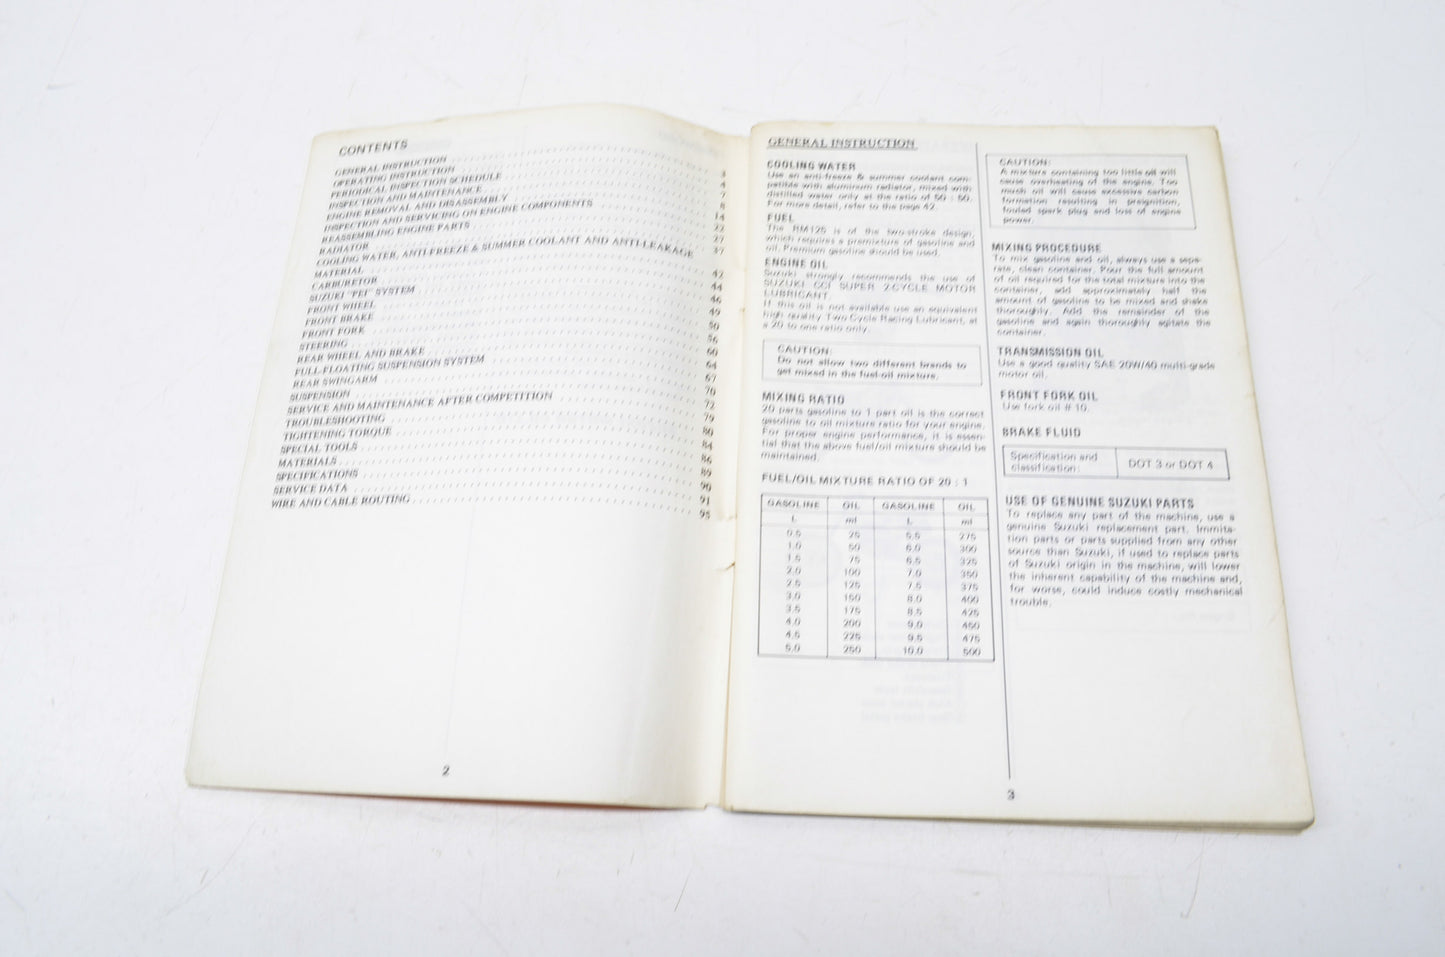 CONTENTS
GENERAL INSTRUCTION 3
OPERATING INSTRUCTION 4
PERIODICAL INSPECTION SCHEDULE 7
INSPECTION AND MAINTENANCE 8
ENGINE REMOVAL AND DISASSEMBLY 14
INSPECTION AND SERVICING ON ENGINE COMPONENTS 22
REASSEMBLING ENGINE PARTS 27
RADIATOR 37
COOLING WATER, ANTI-FREEZE & SUMMER COOLANT AND ANTI-LEAKAGE
MATERIAL 42
CARBURETOR 44
SUZUKI "PEI" SYSTEM 46
FRONT WHEEL 49
FRONT BRAKE 50
FRONT FORK 56
STEERING 60
REAR WHEEL AND BRAKE 64
FULL-FLOATING SUSPENSION SYSTEM 67
REAR SWINGARM 70
SUSPENSION 72
SERVICE AND MAINTENANCE AFTER COMPETITION 79
TROUBLESHOOTING 80
TIGHTENING TORQUE 84
SPECIAL TOOLS 86
MATERIALS 89
SPECIFICATIONS 90
SERVICE DATA 91
WIRE AND CABLE ROUTING 95
2
GENERAL INSTRUCTION
COOLING WATER
Use an anti-freeze & summer coolant com-
patible with aluminum radiator, mixed with
distilled water only at the ratio of 50 : 50.
For more detail, refer to the page 42.
FUEL
The RM125 is of the two-stroke design,
which requires a premixture of gasoline and
oil. Premium gasoline should be used.
ENGINE OIL
Suzuki strongly recommends the use of
SUZUKI CCI SUPER 2-CYCLE MOTOR
LUBRICANT.
If this oil is not available use an equivalent
high quality Two Cycle Racing Lubricant, at
a 20 to one ratio only.
CAUTION:
Do not allow two different brands to
get mixed in the fuel-oil mixture.
MIXING RATIO
20 parts gasoline to 1 part oil is the correct
gasoline to oil mixture ratio for your engine.
For proper engine performance, it is essen-
tial that the above fuel/oil mixture should be
maintained.
FUEL/OIL MIXTURE RATIO OF 20 : 1
GASOLINE OIL GASOLINE OIL
L ml L ml
0.5 25 5.5 275
1.0 50 6.0 300
1.5 75 6.5 325
2.0 100 7.0 350
2.5 125 7.5 375
3.0 150 8.0 400
3.5 175 8.5 425
4.0 200 9.0 450
4.5 225 9.5 475
5.0 250 10.0 500
CAUTION:
A mixture containing too little oil will
cause overheating of the engine. Too
much oil will cause excessive carbon
formation resulting in preignition,
fouled spark plug and loss of engine
power.
MIXING PROCEDURE
To mix gasoline and oil, always use a sepa-
rate, clean container. Pour the full amount
of oil required for the total mixture into the
container, add approximately half the
amount of gasoline to be mixed and shake
thoroughly. Add the remainder of the
gasoline and again thoroughly agitate the
container.
TRANSMISSION OIL
Use a good quality SAE 20W/40 multi-grade
motor oil.
FRONT FORK OIL
Use fork oil # 10.
BRAKE FLUID
Specification and
classification: DOT 3 or DOT 4
USE OF GENUINE SUZUKI PARTS
To replace any part of the machine, use a
genuine Suzuki replacement part. Immita-
tion parts or parts supplied from any other
source than Suzuki, if used to replace parts
of Suzuki origin in the machine, will lower
the inherent capability of the machine and,
for worse, could induce costly mechanical
trouble.
3